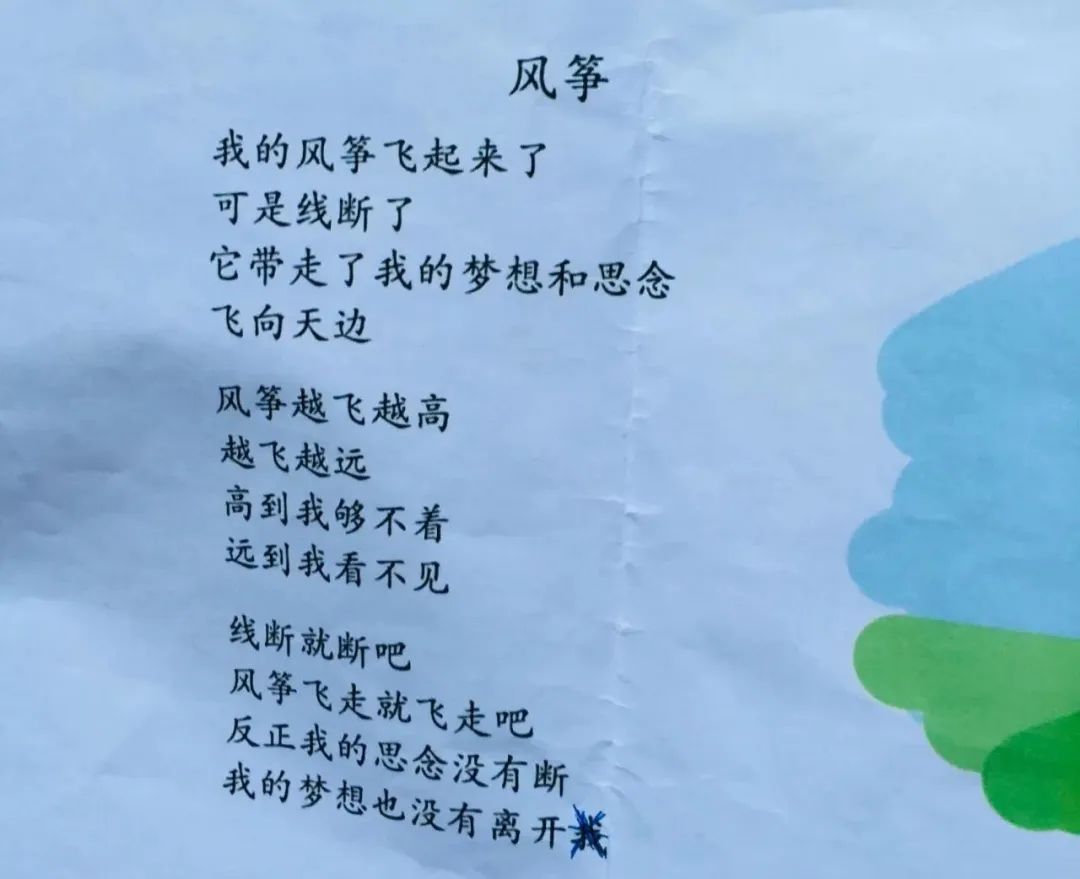 风筝
我的风筝飞起来了
可是线断了
它带走了我的梦想和思念
飞向天边
风筝越飞越高
越飞越远
高到我够不着
远到我看不见
线断就断吧
风筝飞走就飞走吧
反正我的思念没有断
我的梦想也没有离开